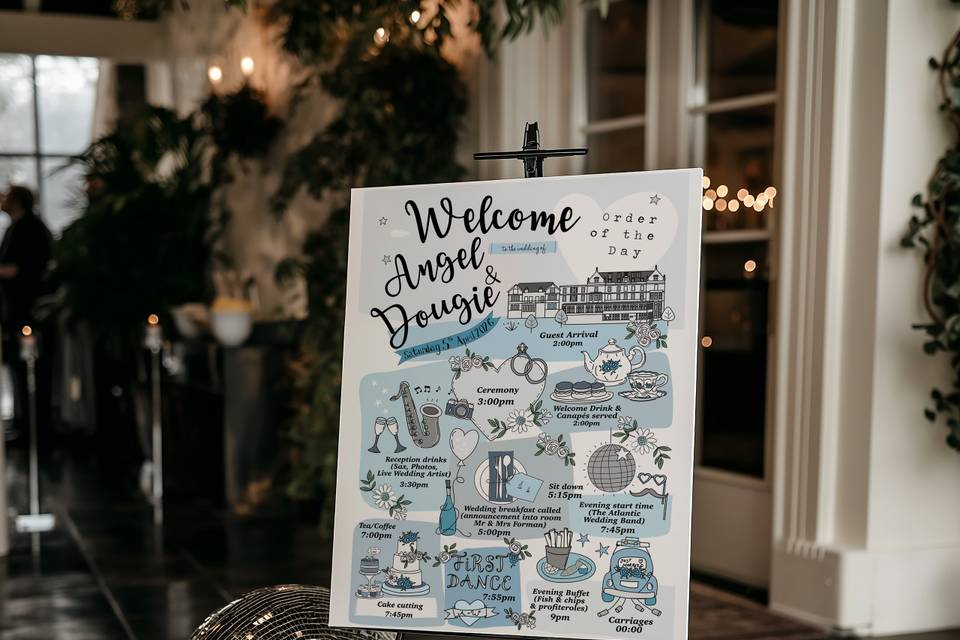 Welcome
to the wedding of
Angel
&
Dougie
Saturday 5th April 2026
Order
of the
Day
Guest Arrival
2:00pm
Ceremony
3:00pm
Welcome Drink &
Canapés served
2:00pm
Reception drinks
(Sax, Photos,
Live Wedding Artist)
3:30pm
Sit down
5:15pm
Wedding breakfast called
(announcement into room
Mr & Mrs Forman)
5:00pm
Evening start time
(The Atlantic
Wedding Band)
7:45pm
Tea/Coffee
7:00pm
Cake cutting
7:45pm
FIRST
DANCE
7:55pm
Evening Buffet
(Fish & chips
& profiteroles)
9pm
Carriages
00:00